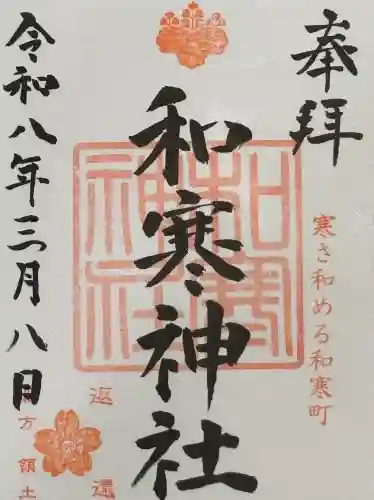 奉拝
寒さ和める和寒町
和寒神社
令和八年三月八日
返還
方領土